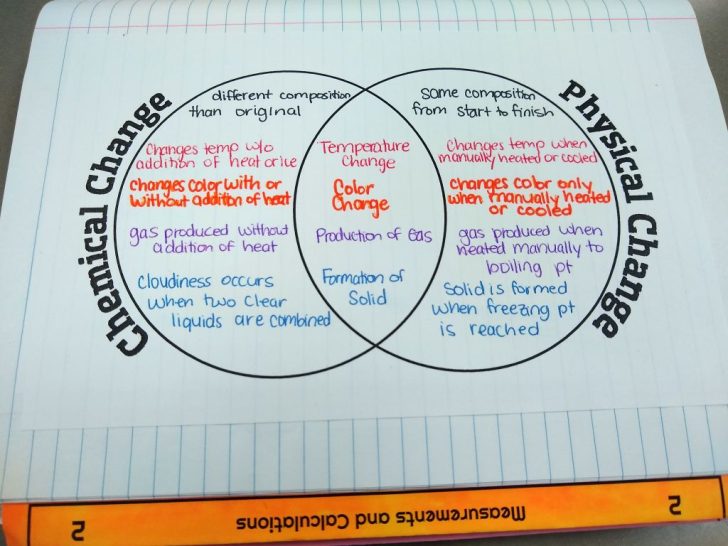 Chemical Change
different composition
than original
Changes temp w/o
addition of heat or ice
changes color with or
without addition of heat
gas produced without
addition of heat
cloudiness occurs
when two clear
liquids are combined
Temperature
Change
Color
Change
Production of Gas
Formation of
Solid
Physical Change
same composition
from start to finish
Changes temp when
manually heated or cooled
changes color only
when manually heated
or cooled
gas produced when
heated manually to
boiling pt
Solid is formed
when freezing pt
is reached
2 Measurements and Calculations 2